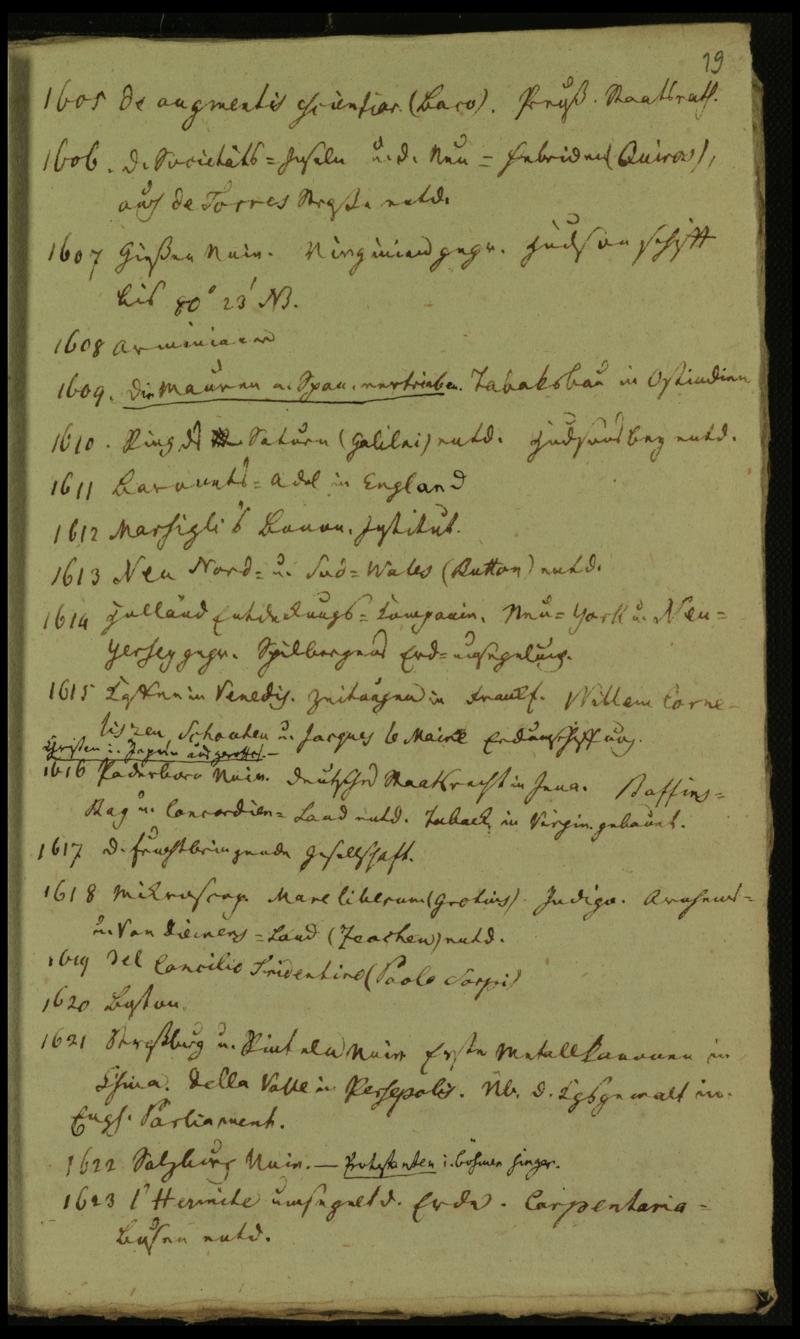 19
1605 De augmentis scientiar. (Baco). Preuß. Staatsrath.
1606. D. Societäts=Inseln u. d. Neu=Hebriden (Quiros),
auch de Torres Straße entd.
1607 Gießen Univ. Virginien gegr. Hudson schifft
bis 80° 23' NB.
1608 Arminianer
1609. Die Mauren a. Span. vertrieben. Tabaksbau in Ostindien
1610. Ring des Saturn (Galilei) entd. Hudsonsbay entd.
1611 Baronets=Adel in England
1612 Marsigli's Bonon. Institut.
1613 Neu Nord= u. Süd=Wales (Button) entd.
1614 Holländ Entdeckungs=Compagnie. Neu=York u. Neu=
Yersey gegr. Spilbergens Erd=umsegelung.
1615 in Venedig. Zeitungen in Frankf. Willem Corne-
liszen Schouten u. Jacques le Maire Erdumschiffung.
Christen in Japan ausgerottet. —
1616 Paderborn Univ. Deutsches Staatsrecht in Jena. Baffins=
Bay u. Concordien=Land entd. Taback in Virgin. gebauet.
1617 D. fruchtbringende Gesellschaft.
1618 Mikroscop. Mare liberum (Grotius). Indigo. Arnhems=
u. Van Diemens=Land (Zeachen) entd.
1619 Del Concilio Tridentino (Paolo Sarpi)
1620 Boston
1621 Straßburg u. Rinteln Univ. Erste Metallkanonen in
China. Della Valle in Persepolis. Üb. d. Kgsgewalt im
Engl. Parliament.
1622 Salzburg Univ. — Protestanten i. Böhmen hinger.
1623 l'Hermite umsegelt d. Erde. Carpentaria=
Busen entd.